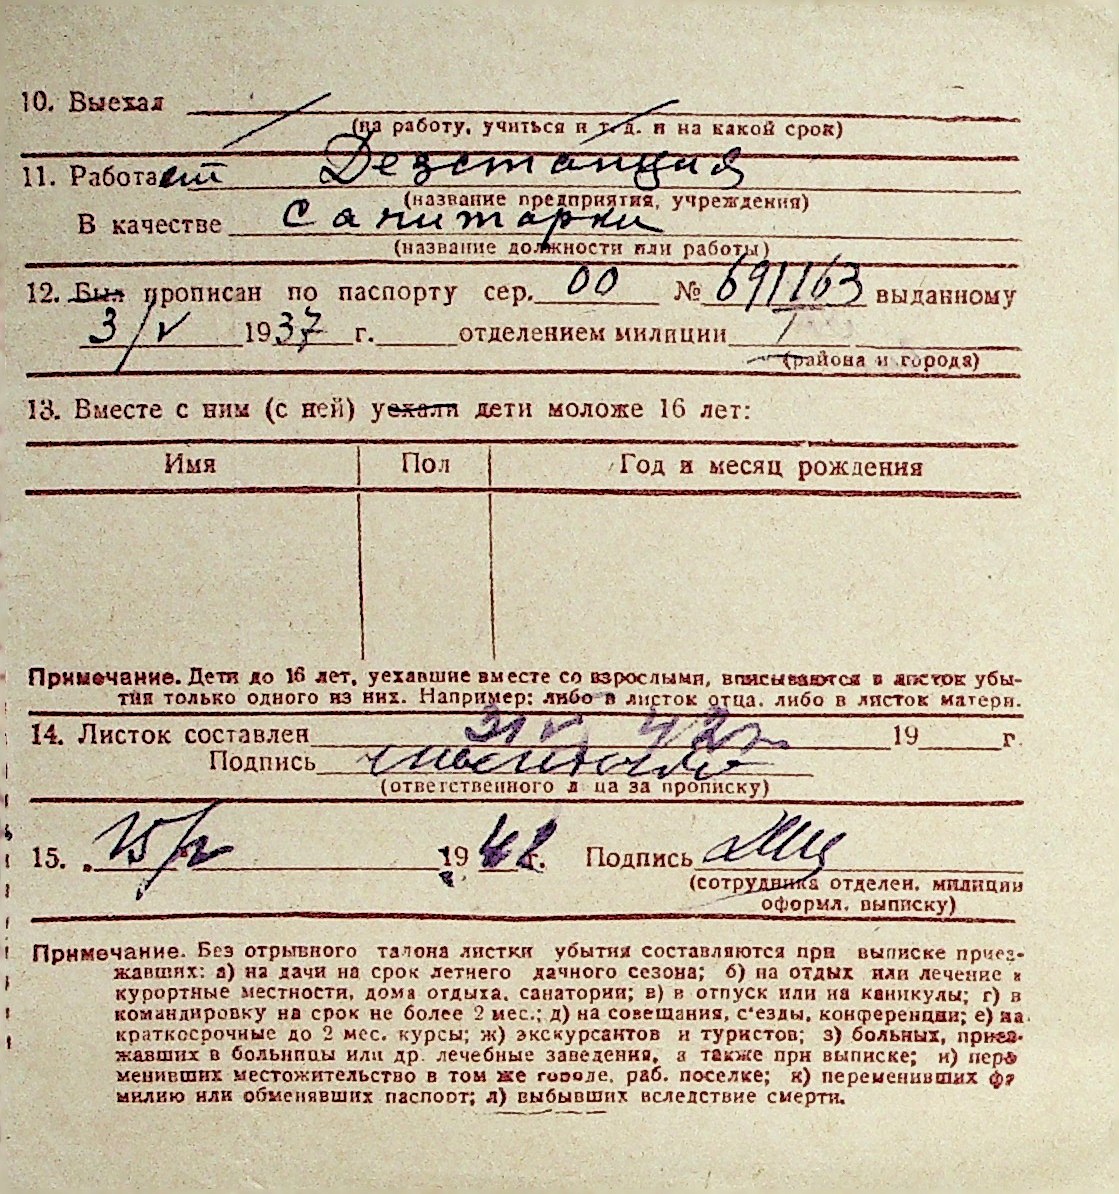 10. Выехал
(на работу, учиться и т. д. и на какой срок)
11. Работает Дезстанция
(название предприятия, учреждения)
В качестве санитарки
(название должности или работы)
12. Был прописан по паспорту сер. 00 № 691163 выданному
3/V 1937 г. отделением милиции I
(района и города)
13. Вместе с ним (с ней) уехали дети моложе 16 лет:
Имя Пол Год и месяц рождения
Примечание. Дети до 16 лет, уехавшие вместе со взрослыми, вписываются в листок убы-
тия только одного из них. Например: либо в листок отца, либо в листок матери.
14. Листок составлен 31 V 42 г 19 г.
Подпись
(ответственного л ца за прописку)
15. 1942 г. Подпись
(сотрудника отделен. милиции
оформл. выписку)
Примечание. Без отрывного талона листки убытия составляются при выписке приез-
жавших: а) на дачи на срок летнего дачного сезона; б) на отдых или лечение в
курортные местности, дома отдыха, санатории; в) в отпуск или на каникулы; г) в
командировку на срок не более 2 мес.; д) на совещания, с'езды, конференции; е) на
краткосрочные до 2 мес. курсы; ж) экскурсантов и туристов; з) больных, приез-
жавших в больницы или др. лечебные заведения, а также при выписке; и) пере
менивших местожительство в том же городе, раб. поселке; к) переменивших фа
милию или обменявших паспорт; л) выбывших вследствие смерти.